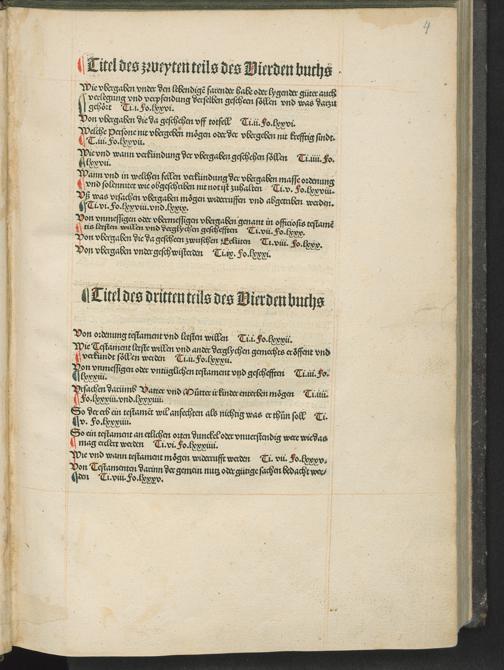 4
Titel des zweyten teils des Vierden buchs
Wie vbergaben vnder den lebendigē farender habe oder lygender güter auch
verlegung vnd verpfendung derselben gescheen söllen vnd was darzu
gehört Ti.i.Fo.lxxvi.
Von vbergaben die da geschehen vff todfell Ti.ii.Fo.lxxvi.
Welche Persone nit vbergeben mögen oder der vbergeben nit krefftig sindt.
T.iii.Fo.lxxvii.
Wie vnd wann verkündung der vbergaben geschehen söllen Ti.iiii.Fo.
lxxvii.
Wann vnd in welchen fellen verkündung der vbergaben masse ordenung
vnd solennitet wie obgeschriben nit not ist zuhalten Ti.v.Fo.lxxviii.
Vß was vrsachen vbergaben mögen widerruffen vnd abgetriben werden.
Ti.vi.Fo.lxxviii.vnd.lxxix.
Von vnmessigen oder vbermessigen vbergaben genant in officiosis testamē
tis letsten willen vnd derglychen geschefften Ti.vii.Fo.lxxx.
Von vbergaben die da gescheen zwuschen Eelüten Ti.viii.Fo.lxxx.
Von vbergaben vnder geschwisterden Ti.ix.Fo.lxxxi.
Titel des dritten teils des Vierden buchs
Von ordenung testament vnd letsten willen Ti.i.Fo.lxxxii.
Wie Testament letste willen vnd ander derglychen gemechts eröffent vnd
verkündt söllen werden Ti.ii.Fo.lxxxii.
Von vnmessigen oder vntüglichen testament vnd geschefften Ti.iii.Fo.
lxxxiii.
Vrsachen darumb Vatter vnd Mütter ir kinder enterben mögen Ti.iiii.
Fo.lxxxiii.vnd.lxxxiiii.
So der erb ein testamēt wil anfechten als nichtig was er thün soll Ti.
v.Fo.lxxxiiii.
So ein testament an etlichen orten dunckel oder vnuerstendig were wie das
mag erclert werden Ti.vi.Fo.lxxxiiii.
Wie vnd wann testament mögen widerrufft werden Ti.vii.Fo.lxxxv.
Von Testamenten darinn der gemein nutz oder gütige sachen bedacht wer-
den Ti.viii.Fo.lxxxv.